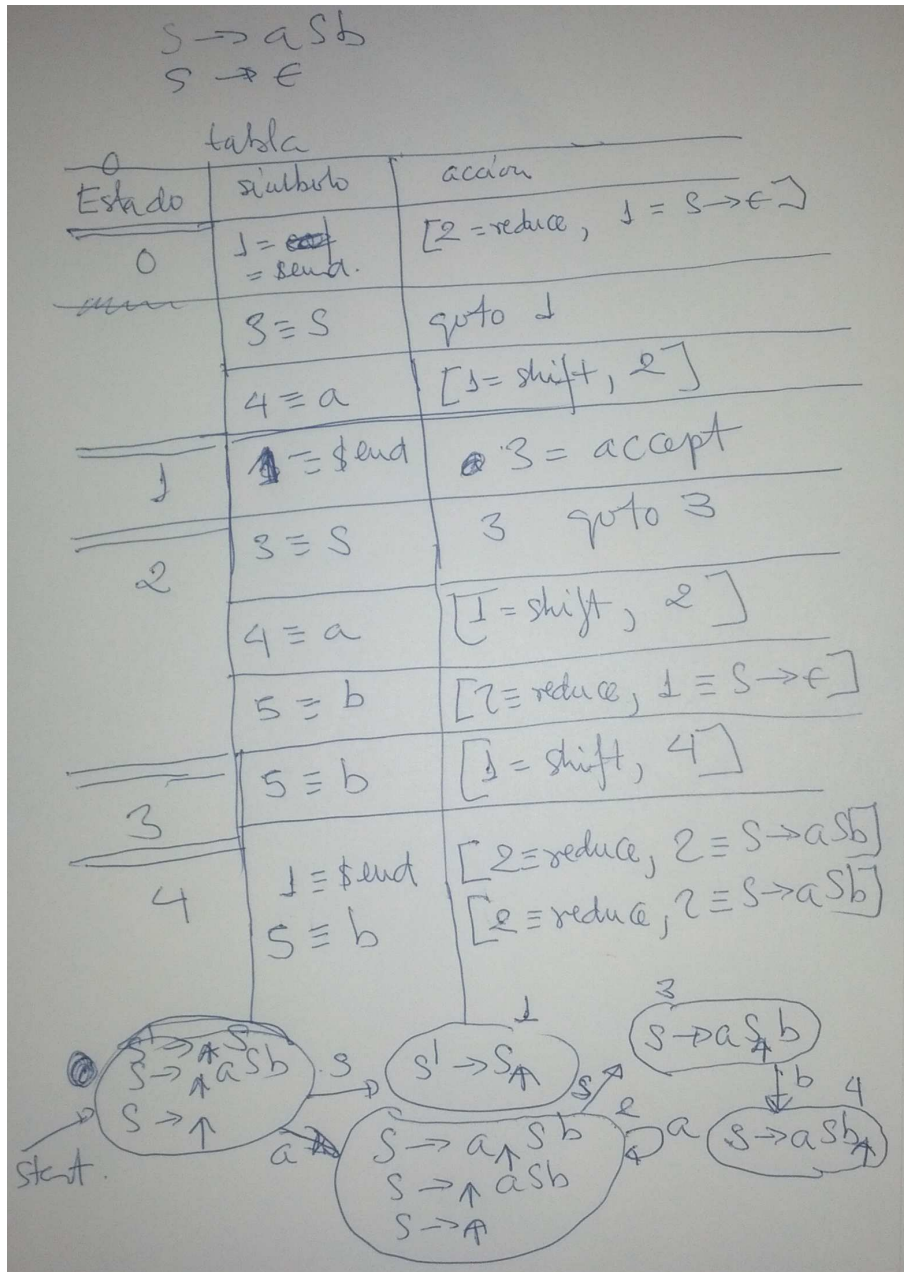 S → aSb
S → ϵ
tabla
Estado símbolo acción
0 1 = $end. [2 = reduce, 1 = S → ϵ]
3 ≡ S goto 1
4 ≡ a [1 = shift, 2]
1 1 ≡ $end 3 = accept
2 3 ≡ S 3 goto 3
4 ≡ a [1 = shift, 2]
5 ≡ b [2 ≡ reduce, 1 ≡ S → ϵ]
3 5 ≡ b [1 = shift, 4]
4 1 ≡ $end [2 ≡ reduce, 2 ≡ S → aSb]
5 ≡ b [2 ≡ reduce, 2 ≡ S → aSb]
start.
S' → ↑S
S → ↑aSb
S → ↑
S
a
1
S' → S↑
S
2
S → a↑Sb
S → ↑aSb
S → ↑
a
3
S → aS↑b
b
4
S → aSb↑